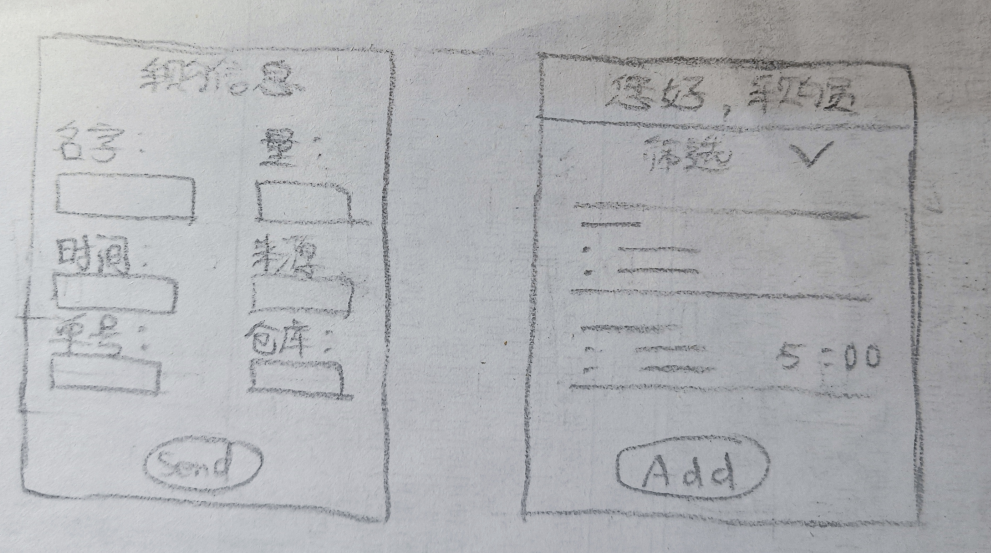 采购信息
名字:
量:
时间:
来源
单号:
仓库:
Send
您好,采购员
筛选
5:00
Add